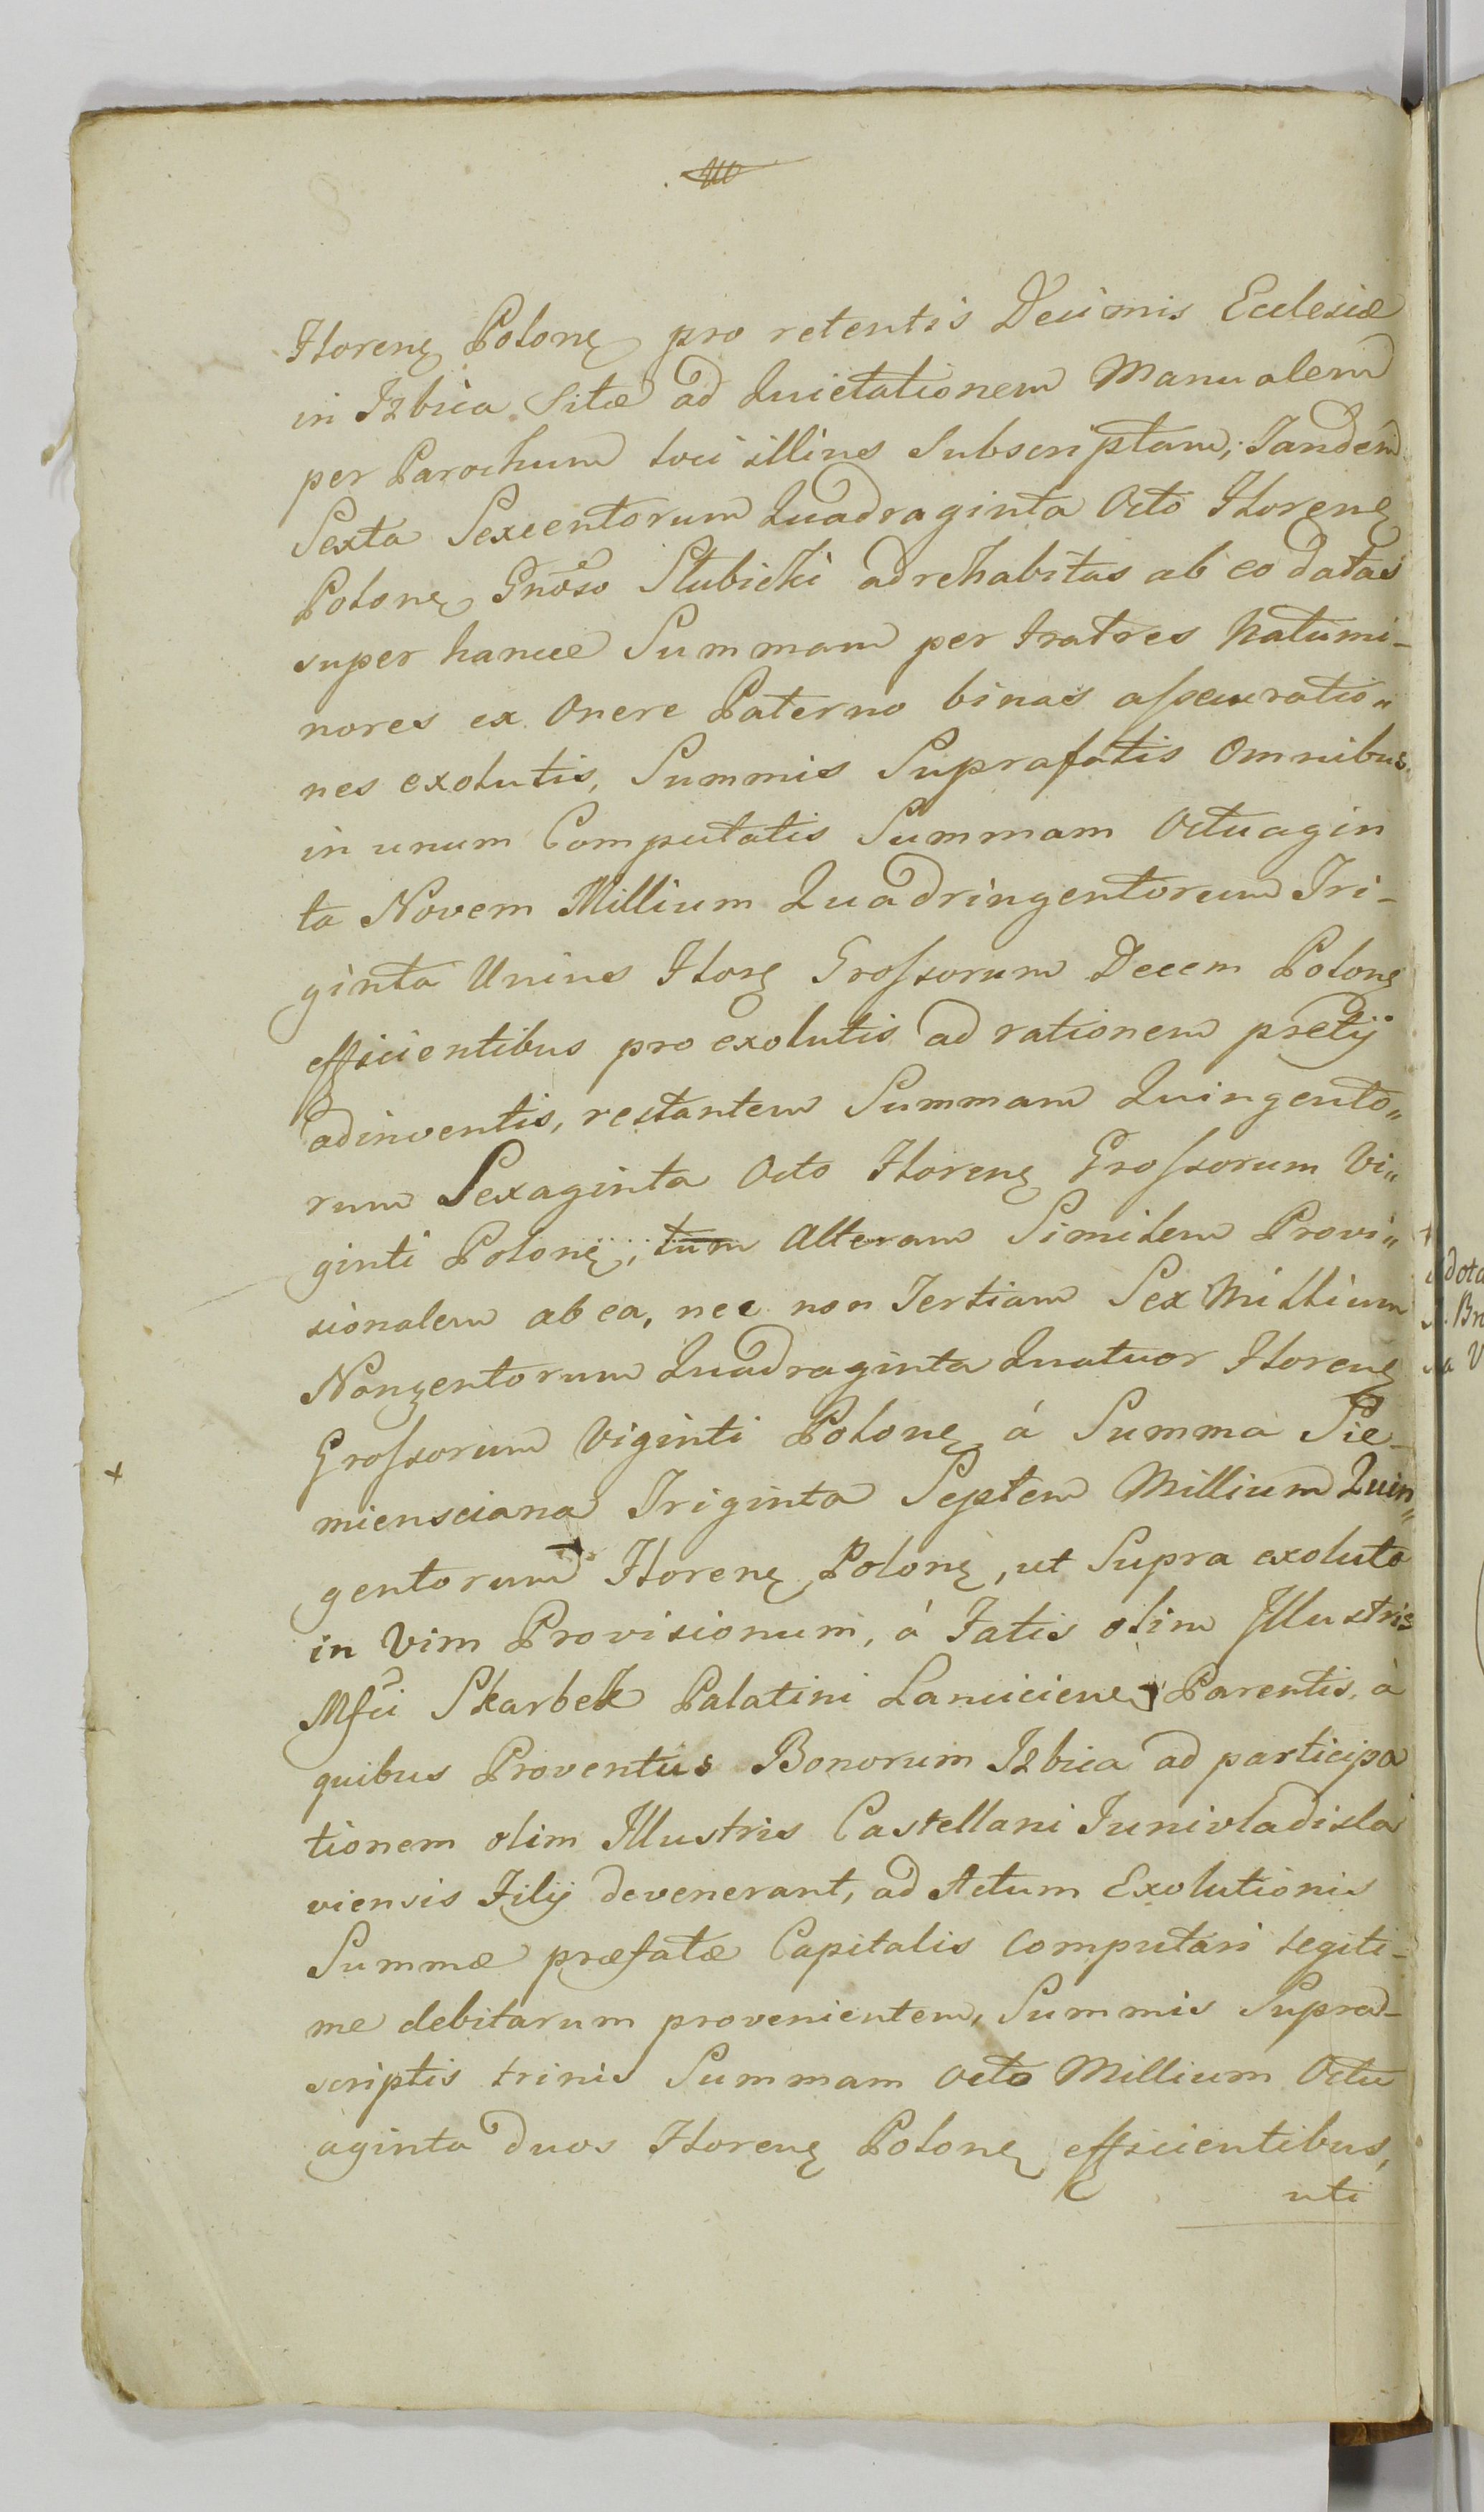 Florenę Polonę pro retentis Decimis Ecclesiæ
in Izbica Sitæ ad Quietationem Manualem
per Parochum loci illius Subscriptam; Tandem
Sexta Sexcentorum Quadraginta Octo Florenę
Polonę Gnoso Słubicki ad rehabitas ab eo datas
super hancce Summam per fratres Natumi-
nores ex Onere Paterno binas assecuratio„
nes exolutis, Summis Suprafatis Omnibus
in unum Computatis Summam Octuagin
ta Novem Millium Quadringentorum Tri-
ginta Unius Florę Grossorum Decem Polonę
efficientibus pro exolutis ad rationem pretij
adinventis, restantem Summam Quingento„
rum Sexaginta Octo Florenę Grossorum Vi„
ginti Polonę, tum Alteram Similem Provi„
sionalem ab ea, nec non Tertiam Sex Millium
Nongentorum Quadraginta Quatuor Florenę
Grossorum Viginti Polonę á Summa Sie-
miensciana Triginta Septem Millium Quin„
gentorum Florenę Polonę, ut Supra exoluto
in Vim Provisionum, á Fatis olim Illustris
Mfci Skarbek Palatini Lanciciensę Parentis, à
quibus Proventus Bonorum Izbica ad participa
tionem olim Illustris Castellani Junivladisla
viensis Filij devenerant, ad Actum Exolutionis
Summæ præfatæ Capitalis Computari legiti-
me debitarum provenientem, Summis Supra-
scriptis trinis Summam Octo Millium Octu
aginta duos Florenę Polonę efficientibus,
uti